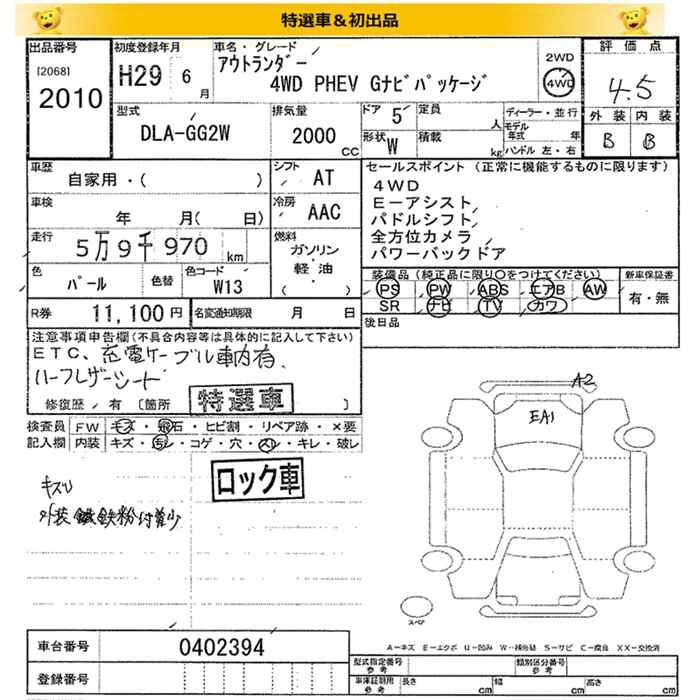 特選車＆初出品
出品番号
[2068]
2010
初度登録年月
H29 6月
車名・グレード
アウトランダー
4WD PHEV Gナビパッケージ
2WD
4WD
評価点
4.5
外装 内装
B B
型式
DLA-GG2W
排気量
2000
CC
ドア 5
形状 W
定員
人
積載
kg
ディーラー・並行
モデル年式 年
ハンドル 左・右
車歴
自家用・( )
シフト
AT
車検
年 月( 日)
冷房
AAC
走行
5万9千970 km
燃料
ガソリン
軽油
( )
色
パール
色替
色コード
W13
R券 11,100円
名変通知期限 月 日
セールスポイント (正常に機能するものに限ります)
4WD
E－アシスト
パドルシフト
全方位カメラ
パワーバックドア
装備品 (純正品に限り○をつけてください)
PS PW ABS エアB AW
SR ナビ TV カワ
新車保証書
有・無
後日品
注意事項申告欄(不具合内容等は具体的に記入して下さい)
ETC、充電ケーブル車内有、
ハーフレザーシート
修復歴 有 [箇所 ]
特選車
検査員 FW キズ・飛石・ヒビ割・リペア跡・×要
記入欄 内装 キズ・汚レ・コゲ・穴・スレ・キレ・破レ
ロック車
キズU
外装 鉄粉付着少
A2
EA1
スペア
車台番号 0402394
登録番号
A－キズ E－エクボ U－凹み W－補修跡 S－サビ C－腐食 XX－交換済
型式指定番号 参考
類別区分番号 参考
車庫証明用 参考 長さ cm 幅 cm 高さ cm